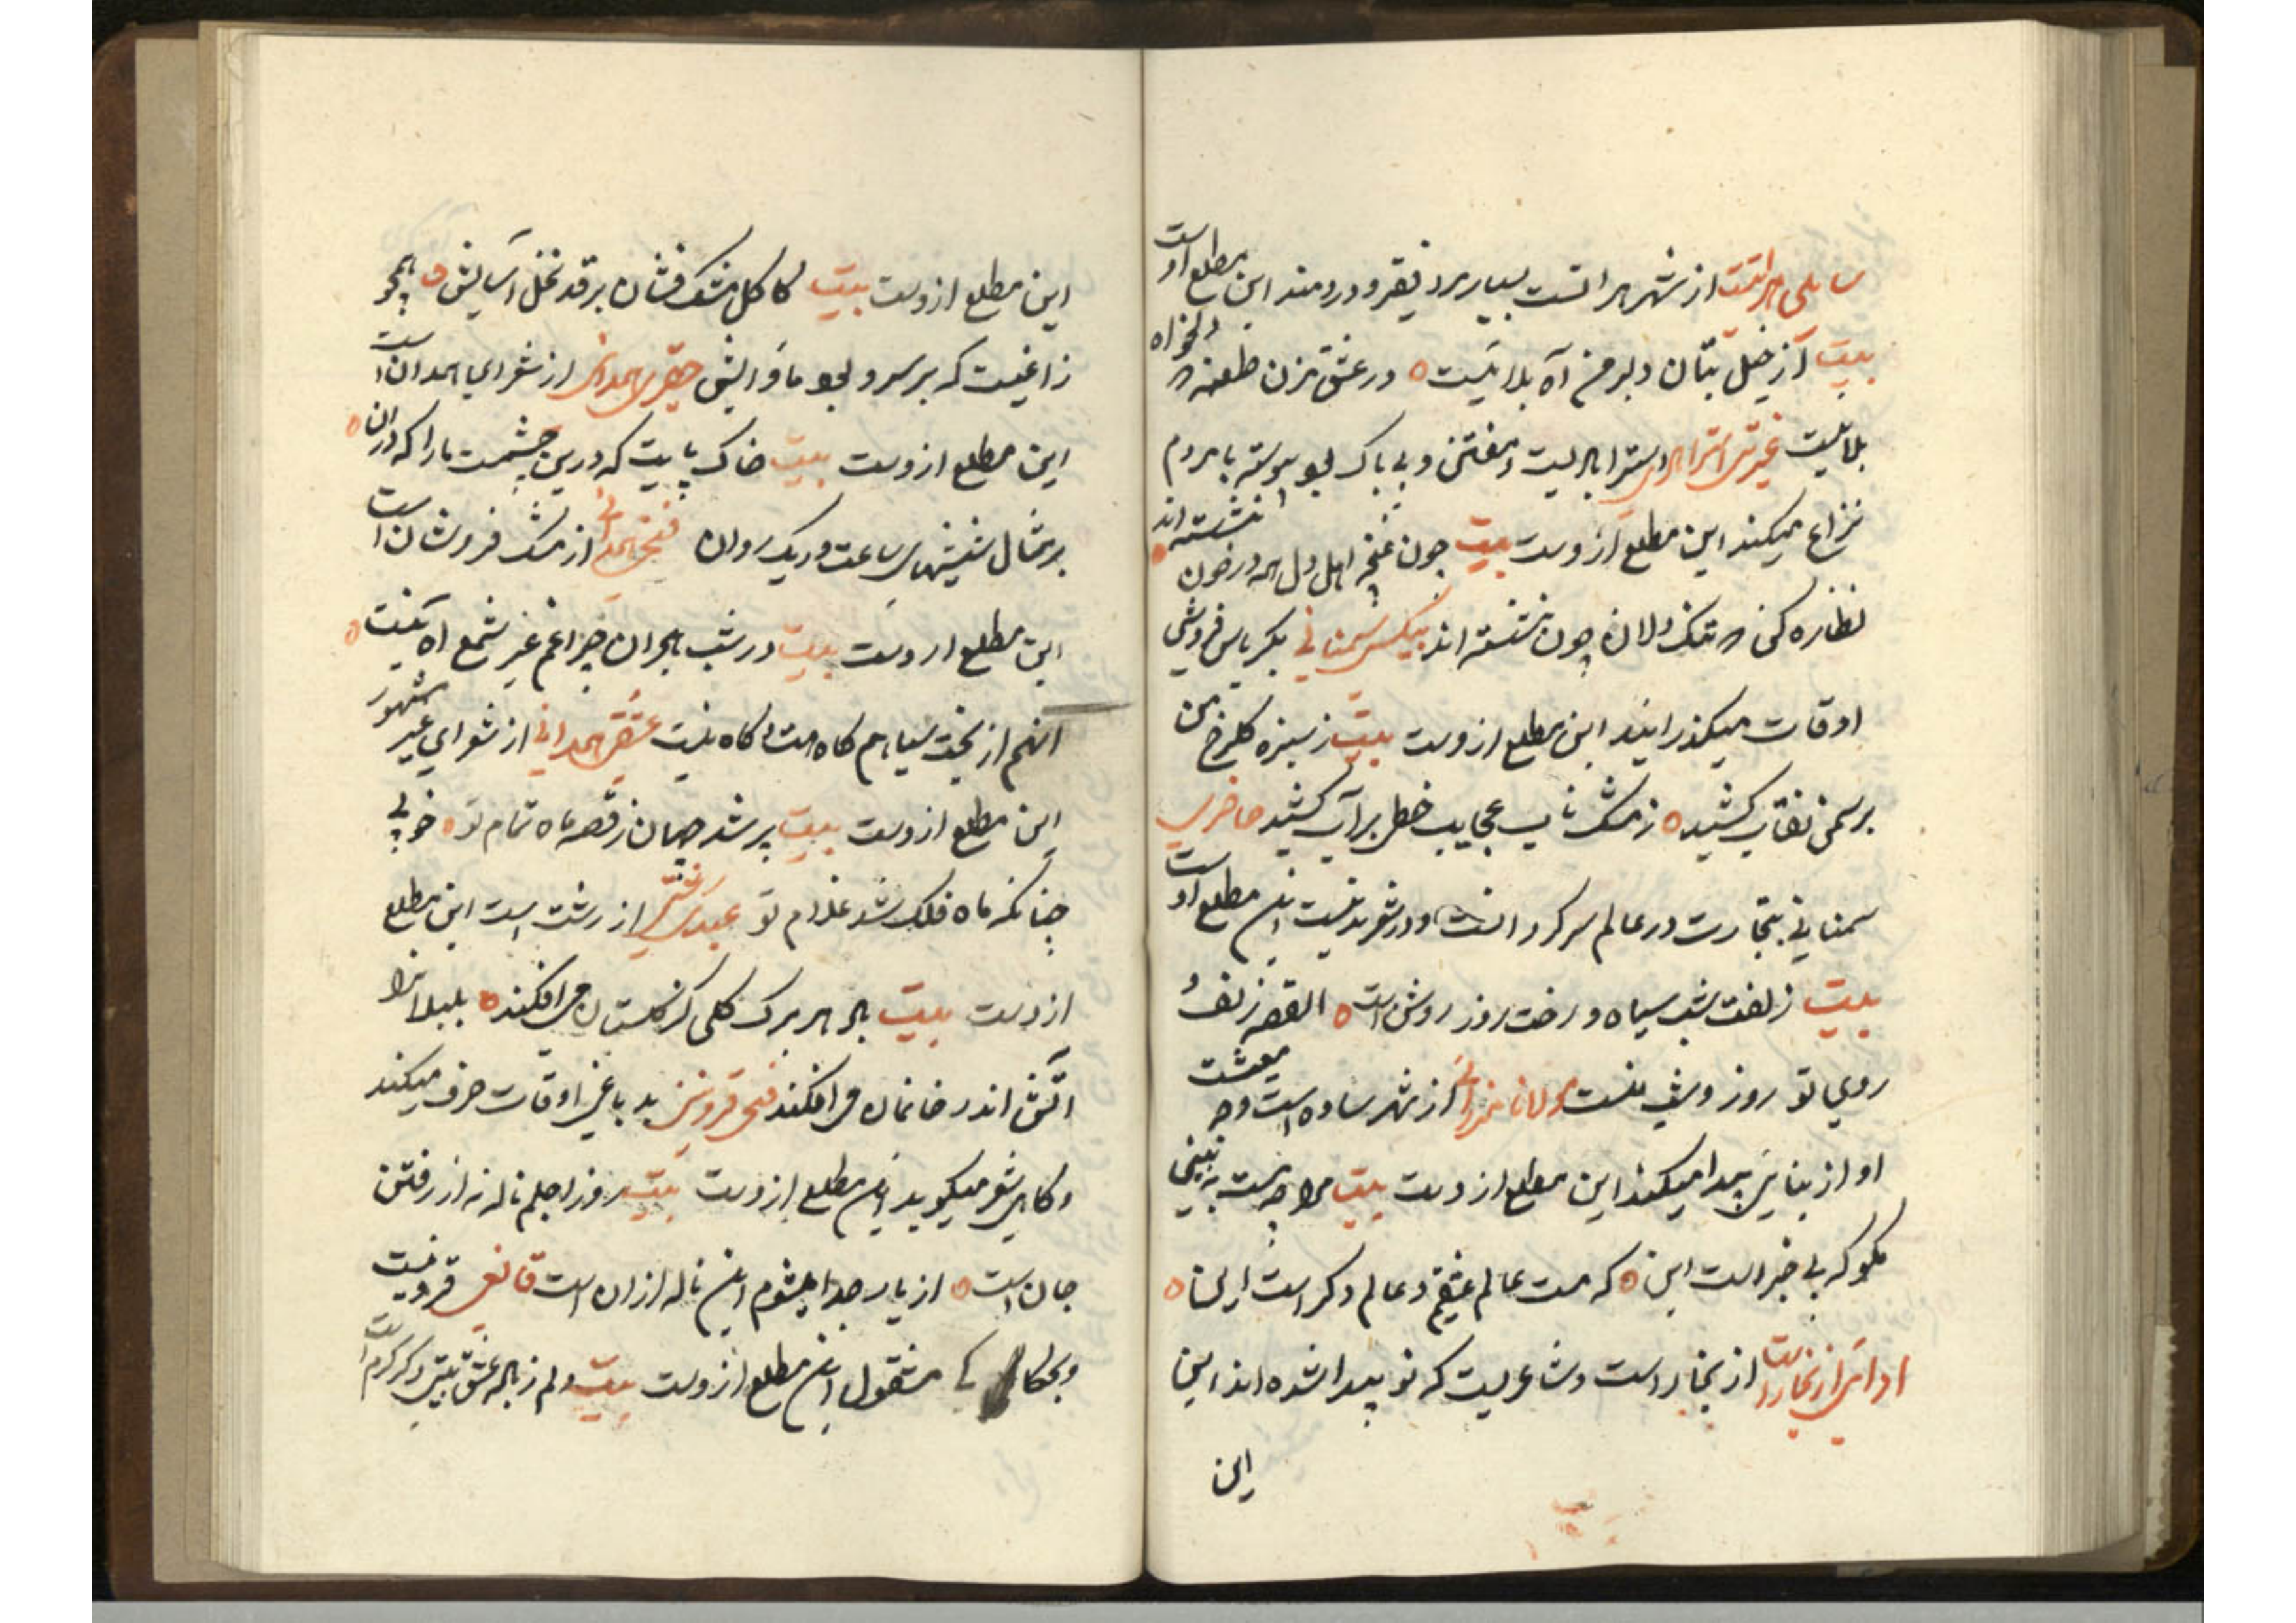 سایلی هراتیست از شهر هراتست بسیار مرد فقیر و دردمند این مطلع اوست
بیت آن خیل بتان دلبر من آه بلائیست ٥ در عشق مزن طعنه دلخواه
بلائیست غیرتی استرابادی استرابادیست و مفتن و بی باک بود پیوسته با مردم
نزاع میکند این مطلع ازوست بیت چون غنچه اهل دل همه در خون نشسته اند ٥
نظاره کن که تنک دلان چون نشسته اند بیکس سمنانی بکرباس فروشی
اوقات میکذرانید این مطلع ازوست بیت ز سبزه کلرخ من
بر سمن نقاب کشید ٥ ز مشک ناب عجایب خطی بر آب کشید حاضری
سمنانی بتجارت در عالم سرکردانست و در شعر بد نیست این مطلع اوست
بیت زلفت شب سیاه و رخت روز روشن است ٥ القصه زلف و
روی تو روز و شب منست مولانا از شهر ساوه است وجه معیشت
او از بنایی پیدا میکند این مطلع ازوست بیت مرا چه هست به بینی
مکو که بی خبر است این ٥ که مست عالم عشقم و عالم دکر است اینجا ٥
ادائی از بخارا است از بخارا است و شاعریست که نو پیدا شده اند این
این
این مطلع ازوست بیت کاکل مشک فشان بر قد نخل آسایش ٥ همچو
زاغیست که بر سرو بود ماوایش حقیری همدانی از شعرای همدان است
این مطلع ازوست بیت خاک پایت که درین چشمست ما را که در آن ٥
بر مثال شیشهای ساعت و ریک روان فتحی همدانی از مشک فروشان است
این مطلع ازوست بیت در شب هجران چراغم غیر شمع آه نیست ٥
آنهم از بخت سیاهم کاه هست و کاه نیست عشقی همدانی از شعرای غیر مشهور
این مطلع ازوست بیت پر شد جهان ز قصه ماه تمام تو ٥ خوبی
چنانکه ماه فلک شد غلام تو عبدی رشتی از رشت است این مطلع
ازوست بیت باد هر برک کلی کز کلستان می افکند ٥ بلبلانرا
آتش اندر خانمان می افکند فتحی قزوینی بدباغی اوقات صرف میکند
و کاهی شعر میکوید این مطلع ازوست بیت روز اجلم ناله نه از رفتن
جان است ٥ از یار جدا میشوم این ناله از آن است قانعی قزوینیست
مشغول این مطلع ازوست بیت دلم ز باده عشق بتی دکر کرم است